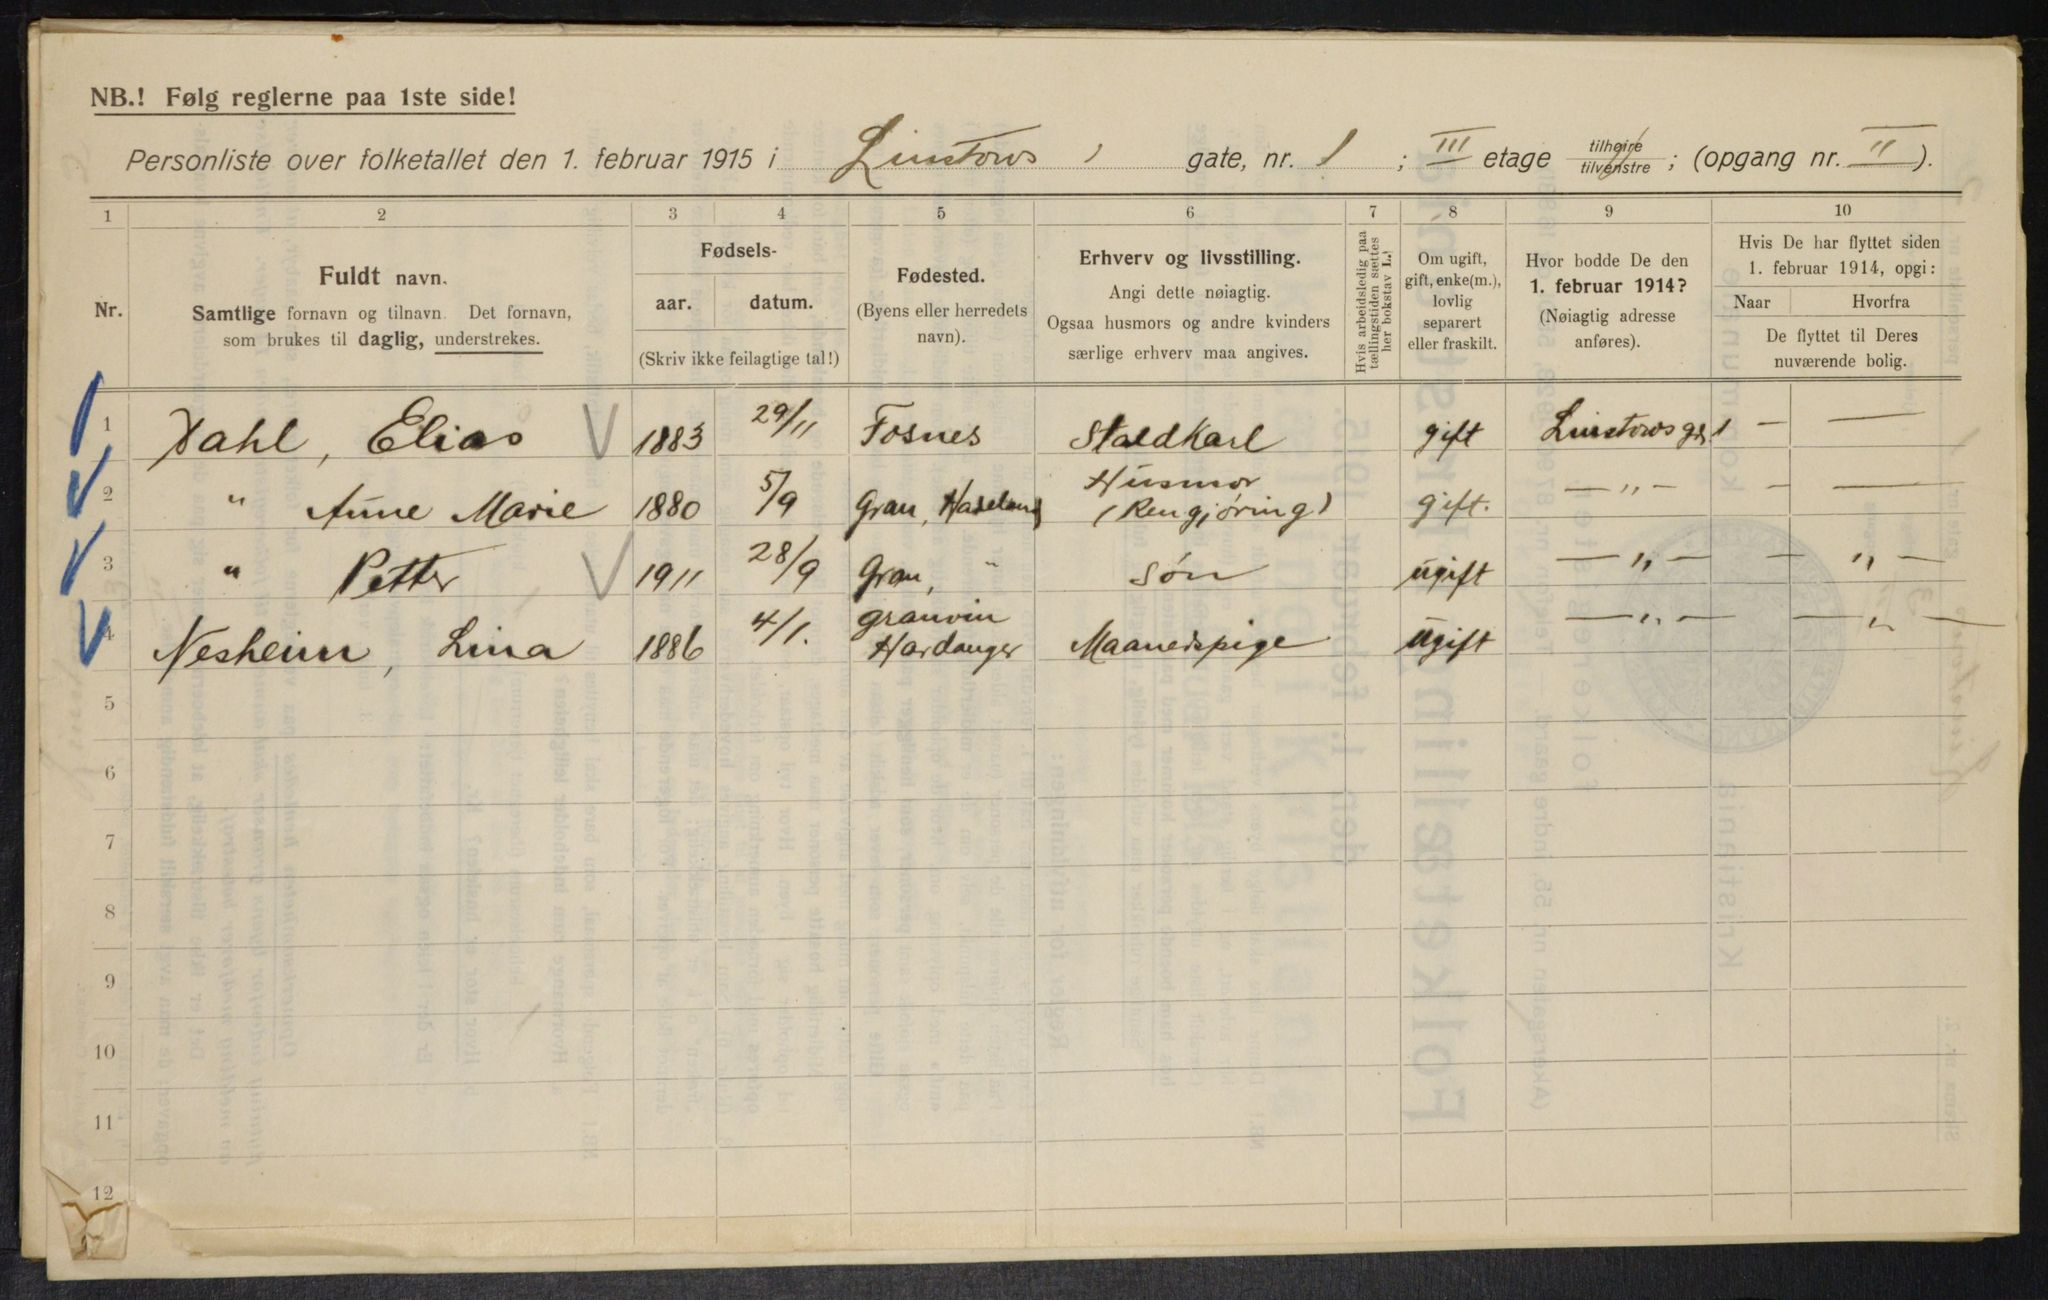 NB.! Følg reglerne paa 1ste side!
Personliste over folketallet den 1. februar 1915 i Linstows gate, nr. 1 ; III etage tilhøire / tilvenstre ; (opgang nr. II ).
1 2 3 4 5 6 7 8 9 10
Nr. Fuldt navn. Samtlige fornavn og tilnavn. Det fornavn, som brukes til daglig, understrekes.
Fødsels- aar. datum. (Skriv ikke feilagtige tal!)
Fødested. (Byens eller herredets navn).
Erhverv og livsstilling. Angi dette nøiagtig. Ogsaa husmors og andre kvinders særlige erhverv maa angives.
Hvis arbeidsledig paa tællingstiden sættes her bokstav L.
Om ugift, gift, enke(m.), lovlig separert eller fraskilt.
Hvor bodde De den 1. februar 1914? (Nøiagtig adresse anføres).
Hvis De har flyttet siden 1. februar 1914, opgi: Naar Hvorfra De flyttet til Deres nuværende bolig.
1 Dahl, Elias 1883 29/11 Fosnes Staldkarl gift Linstowsgd 1 — —
2 " Anne Marie 1880 5/9 Gran, Hadeland Husmor (Rengjøring) gift. — " — — —
3 " Petter 1911 28/9 Gran, " Søn ugift — " — — " —
4 Nesheim, Lina 1886 4/1. Granvin Hardanger Maanedspige ugift — " — — " —
5
6
7
8
9
10
11
12